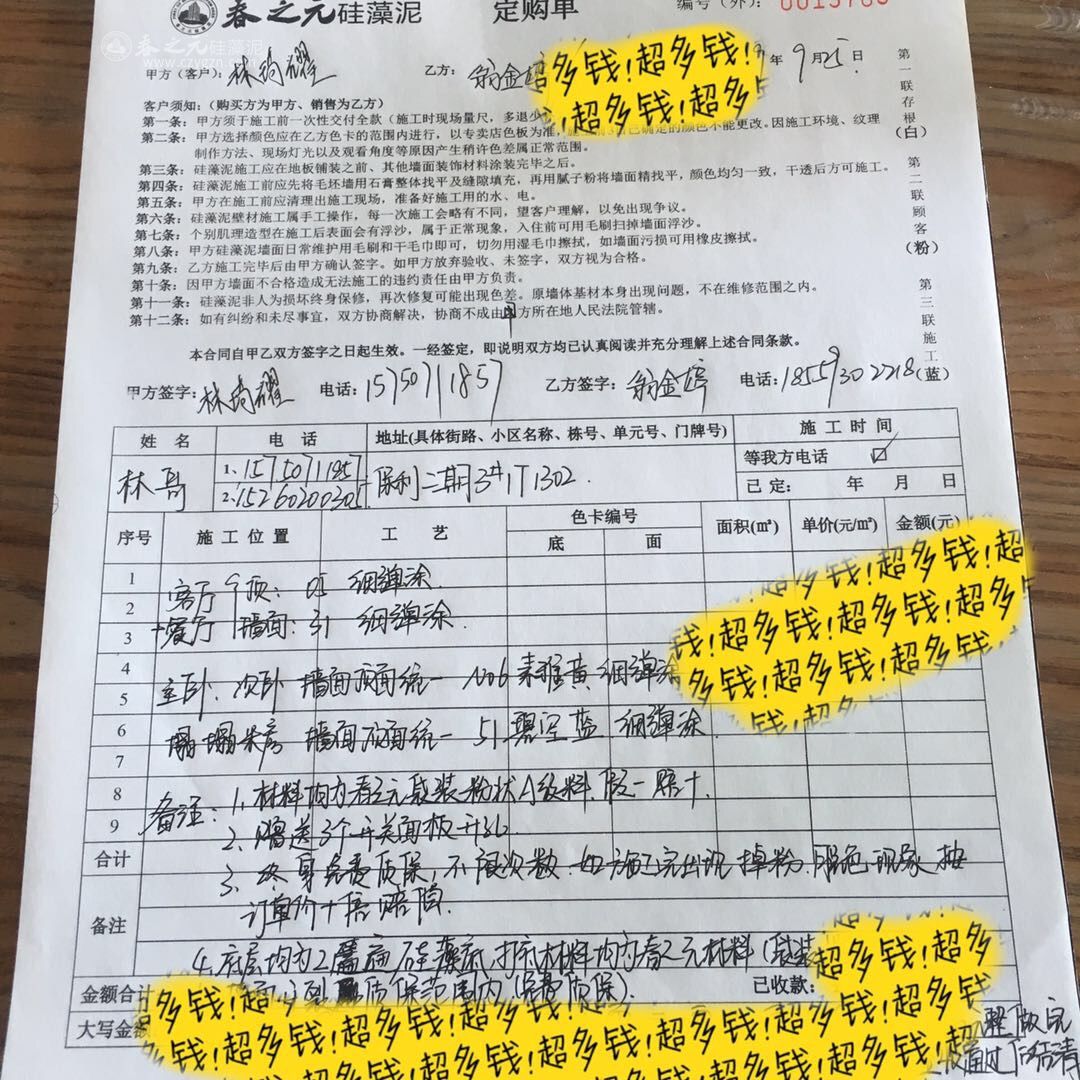 春之元硅藻泥 定购单 编号（外）：0015765
春之元硅藻泥
www.czygzn.com
甲方（客户）： 乙方：翁金婷 9月25日
客户须知：（购买方为甲方、销售为乙方）
第一条：甲方须于施工前一次性交付全款（施工时现场量尺，多退少
第二条：甲方选择颜色应在乙方色卡的范围内进行，以专卖店色板为准，确定的颜色不能更改。因施工环境、纹理
制作方法、现场灯光以及观看角度等原因产生稍许色差属正常范围。
第三条：硅藻泥施工应在地板铺装之前、其他墙面装饰材料涂装完毕之后。
第四条：硅藻泥施工前应先将毛坯墙用石膏整体找平及缝隙填充，再用腻子粉将墙面精找平，颜色均匀一致，干透后方可施工。
第五条：甲方在施工前应清理出施工现场，准备好施工用的水、电。
第六条：硅藻泥壁材施工属手工操作，每一次施工会略有不同，望客户理解，以免出现争议。
第七条：个别肌理造型在施工后表面会有浮沙，属于正常现象，入住前可用毛刷扫掉墙面浮沙。
第八条：甲方硅藻泥墙面日常维护用毛刷和干毛巾即可，切勿用湿毛巾擦拭，如墙面污损可用橡皮擦拭。
第九条：乙方施工完毕后由甲方确认签字。如甲方放弃验收、未签字，双方视为合格。
第十条：因甲方墙面不合格造成无法施工的违约责任由甲方负责。
第十一条：硅藻泥非人为损坏终身保修，再次修复可能出现色差。原墙体基材本身出现问题，不在维修范围之内。
第十二条：如有纠纷和未尽事宜，双方协商解决，协商不成由甲方所在地人民法院管辖。
第一联存根（白）第二联顾客（粉）第三联施工（蓝）
本合同自甲乙双方签字之日起生效。一经签定，即说明双方均已认真阅读并充分理解上述合同条款。
甲方签字： 电话：15750711857 乙方签字：翁金婷 电话：18559302218
姓名 电话 地址(具体街路、小区名称、栋号、单元号、门牌号) 施工时间
林哥 1.15750711857 保利二期3#1T1302. 等我方电话 ☑
2.15260200305 已定： 年 月 日
序号 施工位置 工艺 色卡编号 面积(㎡) 单价(元/㎡) 金额(元)
底 面
1
客厅 顶：05 细弹涂
2
3
+餐厅 墙面：31 细弹涂
4
主卧、次卧 墙面顶面统一 No6 素雅黄 细弹涂
5
6
榻榻米房 墙面顶面统一 51.碧空蓝 细弹涂
7
8
备注：1.材料均为春之元袋装粉状A级料.假一赔十.
9
2.赠送3个开关面板开孔
合计
3.终身免费质保，不限次数.如施工完出现掉粉.脱色现象按
订单价十倍赔偿.
备注
4.底层均为2遍 硅藻底 打底材料均为春之元材料（袋装
质保范围内（免费质保）.
金额合计 已收款：
大写金额
整做完
通过后结清
超多钱！超多钱！